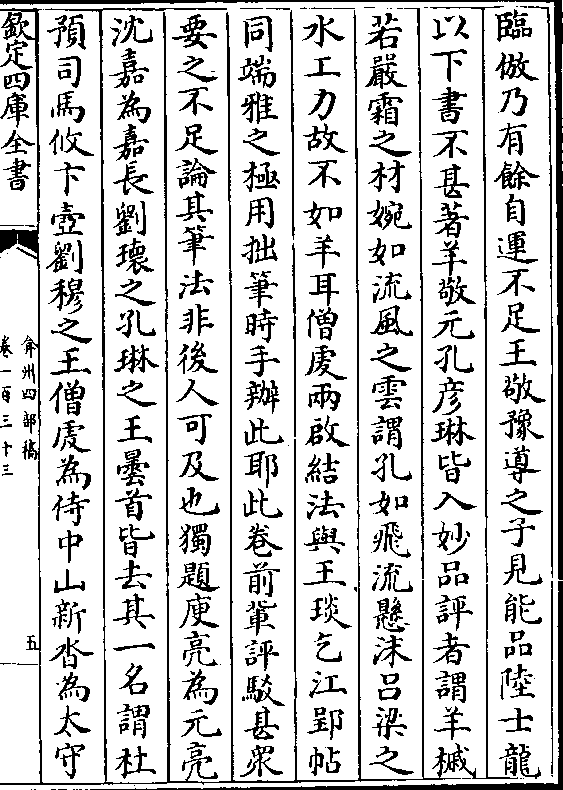 臨倣乃有餘自運不足王敬豫導之子見能品陸士龍
以下書不甚著羊敬元孔彦琳皆入妙品評者謂羊槭
若嚴霜之材婉如流風之雲謂孔如飛流懸沫吕梁之
水工力故不如羊耳僧䖍兩啟結法與王琰乞江郢帖
同端雅之極用拙筆時手辦此耶此卷前軰評駁甚衆
要之不足論其筆法非後人可及也獨題庾亮為元亮
沈嘉為嘉長劉瓌之孔琳之王曇首皆去其一名謂杜
預司馬攸卞壼劉穆之王僧䖍為侍中山新沓為太守
欽定四庫全書
弇州四部稿
卷一百三十三
五